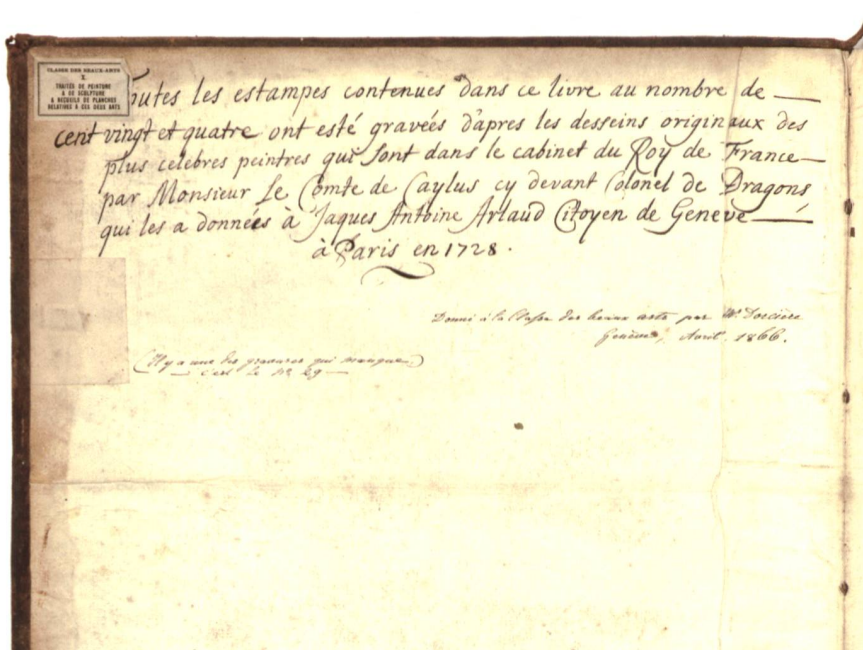 CLASSE DES BEAUX-ARTS
X.
TRAITÉS DE PEINTURE
& DE SCULPTURE
& RECUEILS DE PLANCHES
RELATIVES A CES DEUX ARTS
Toutes les estampes contenues dans ce livre au nombre de
cent vingt et quatre ont esté gravées d'apres les desseins originaux des
plus celebres peintres qui sont dans le cabinet du Roy de France
par Monsieur Le Comte de Caylus cy devant Colonel de Dragons,
qui les a données à Jaques Antoine Arlaud Citoyen de Geneve
à Paris en 1728.
Donné à la Classe des beaux arts par Mr
Genève, Avril 1866.
(Il y a une des gravures qui manque)
c'est le No 29